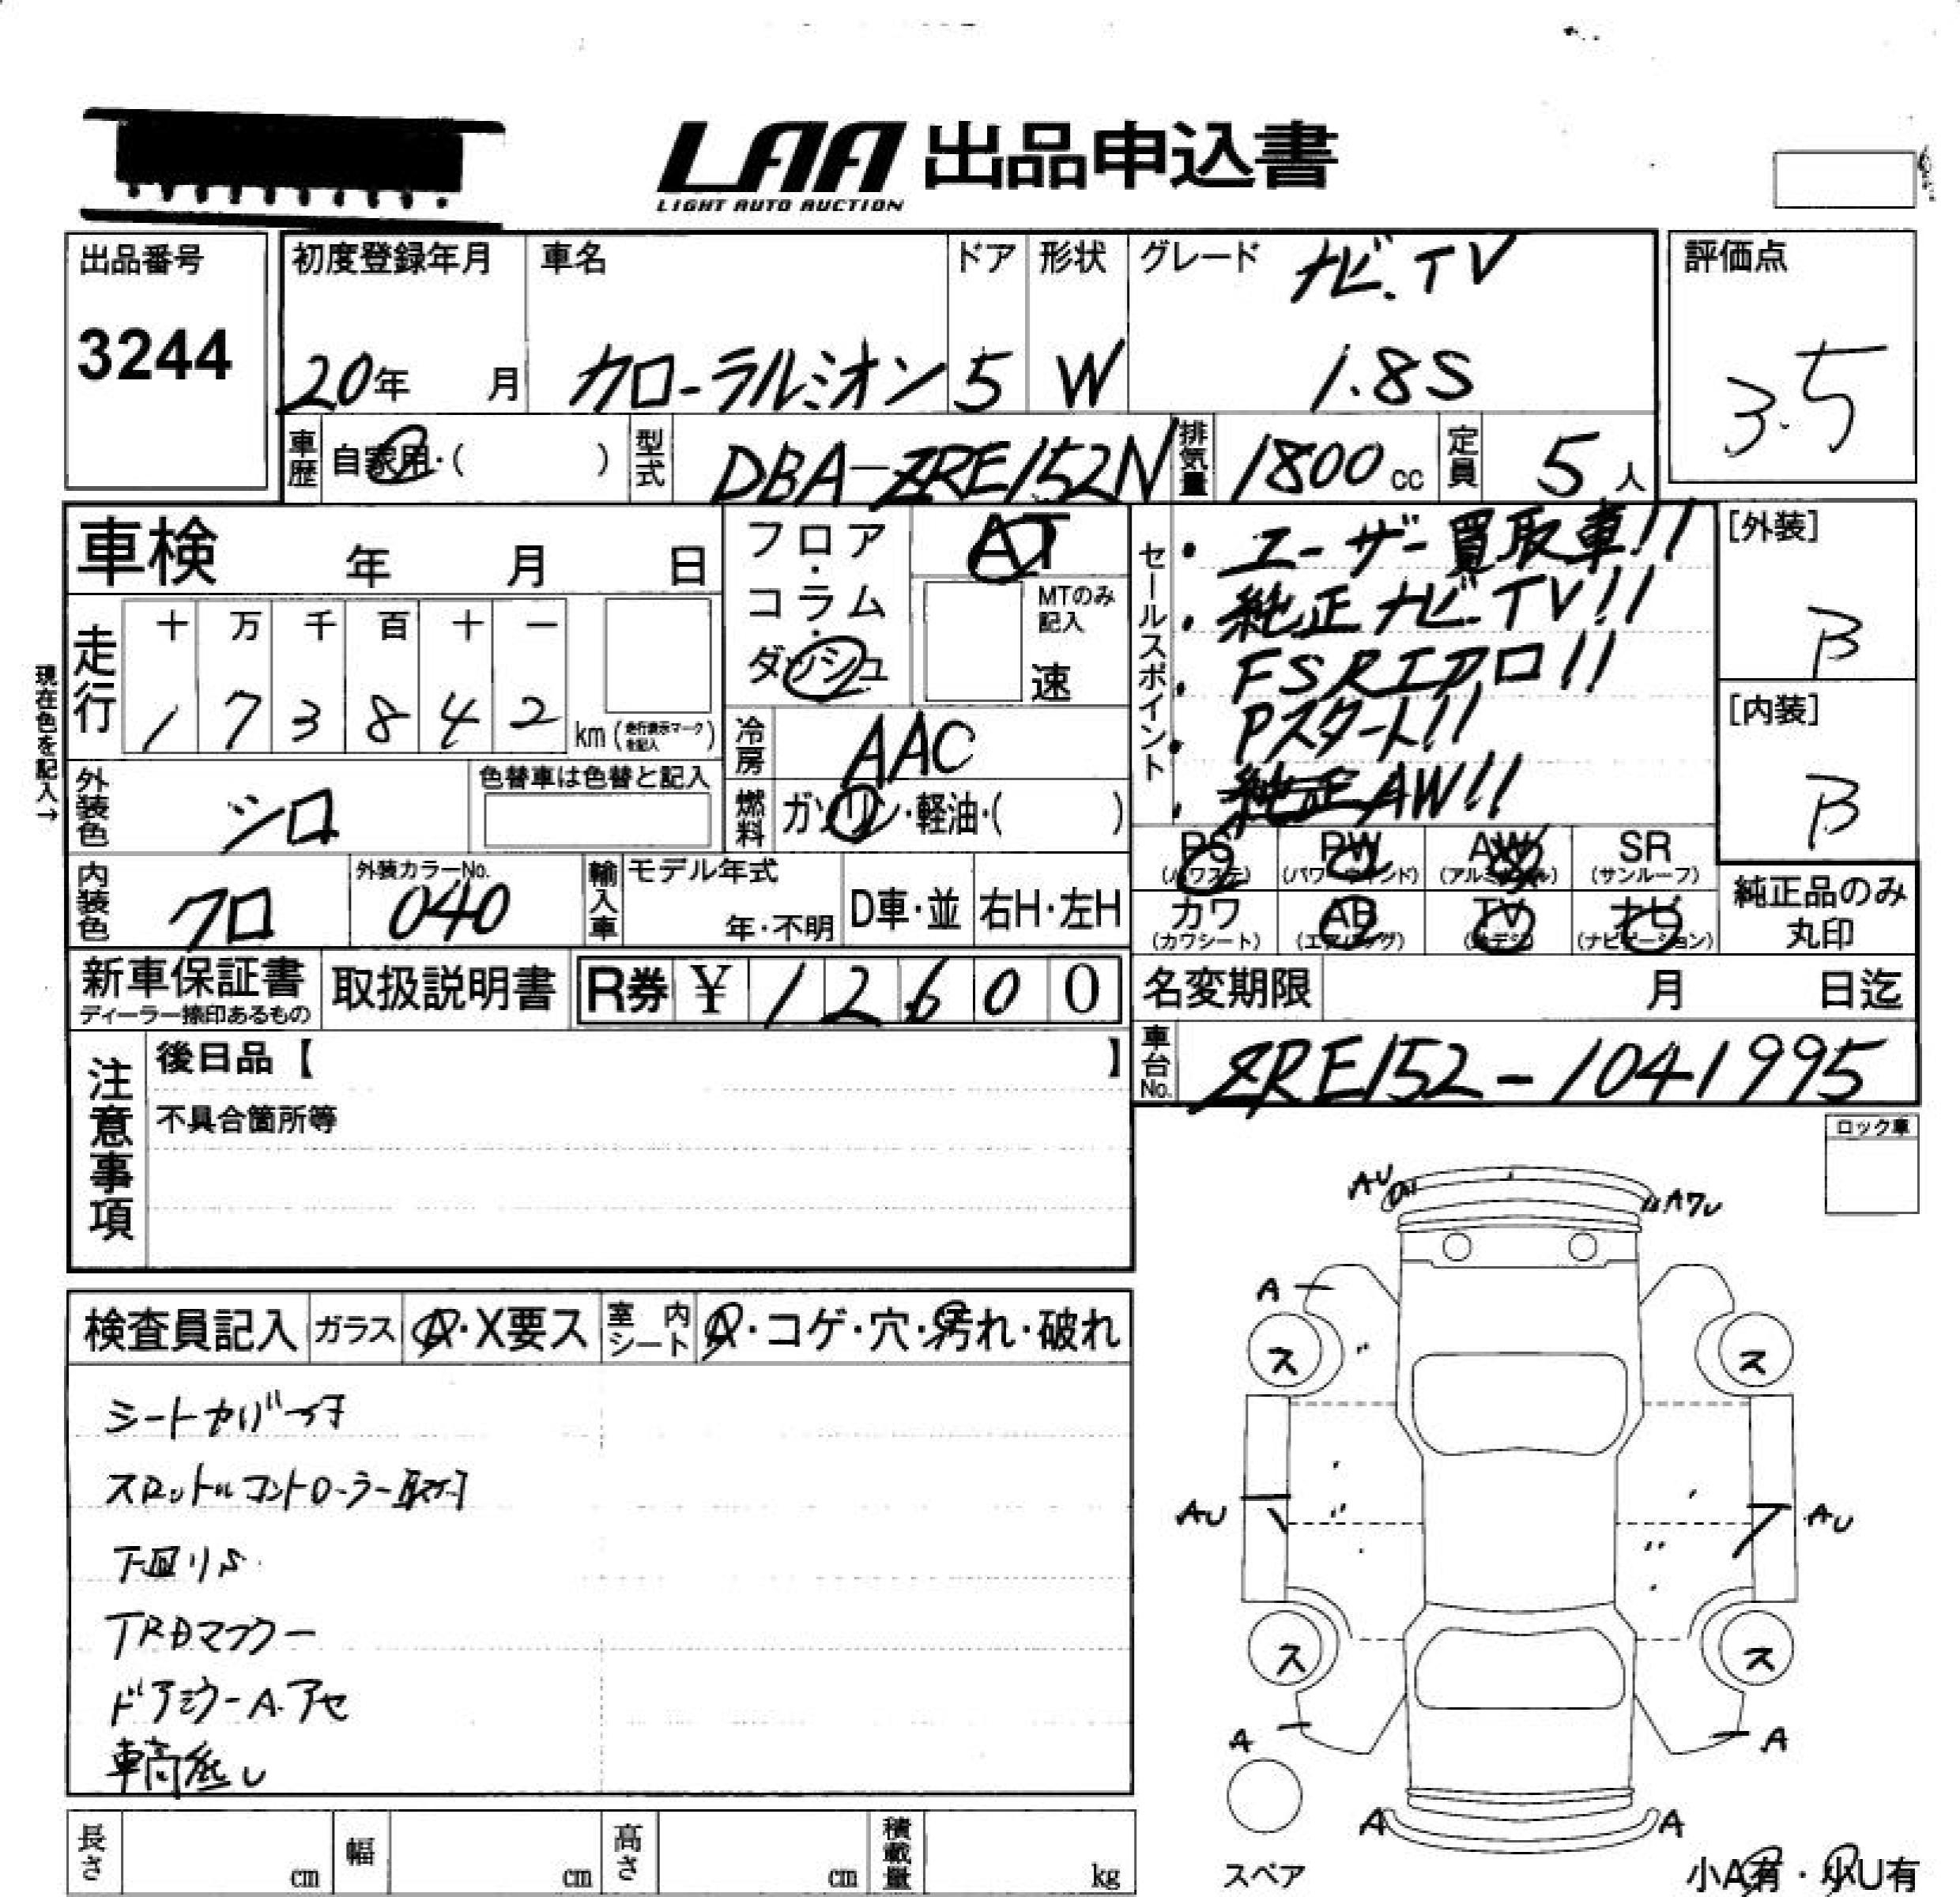 LAA 出品申込書
LIGHT AUTO AUCTION
出品番号
3244
初度登録年月
20年 月
車名
カローラルミオン
ドア
5
形状
W
グレード
ナビ.TV
1.8S
評価点
3.5
車歴 自家用・( )
型式 DBA-ZRE152N
排気量 1800cc
定員 5人
車検 年 月 日
走行
十 万 千 百 十 一
1 7 3 8 4 2 km (走行表示マークを記入)
現在色を記入→
フロア・コラム・ダッシュ
AT
MTのみ記入
速
冷房 AAC
燃料 ガソリン・軽油・( )
外装色 シロ
色替車は色替と記入
内装色 クロ
外装カラーNo.
040
輸入車 モデル年式
年・不明
D車・並 右H・左H
セールスポイント
・ユーザー買取車!!
・純正ナビ-TV!!
・FSRエアロ!!
・Pスタート!!
・純正AW!!
[外装]
B
[内装]
B
PS (パワステ)
PW (パワーウインド)
AW (アルミホイール)
SR (サンルーフ)
カワ (カワシート)
AB (エアバッグ)
TV (地デジ)
ナビ (ナビゲーション)
純正品のみ
丸印
新車保証書
ディーラー捺印あるもの
取扱説明書
R券 ¥ 1 2 6 0 0
名変期限 月 日迄
車台No. ZRE152-1041995
注意事項
後日品【 】
不具合箇所等
ロック車
検査員記入
ガラス A・X要ス
室内シート A・コゲ・穴・汚れ・破れ
シートカバー付
スロットルコントローラー取付
下回りS
TRDマフラー
ドアミラーA.アセ
車高低し
AU
Aワレ
A
ス
ス
AU
AU
ス
ス
A
A
A
A
スペア
小A有・小U有
長さ cm
幅 cm
高さ cm
積載量 kg